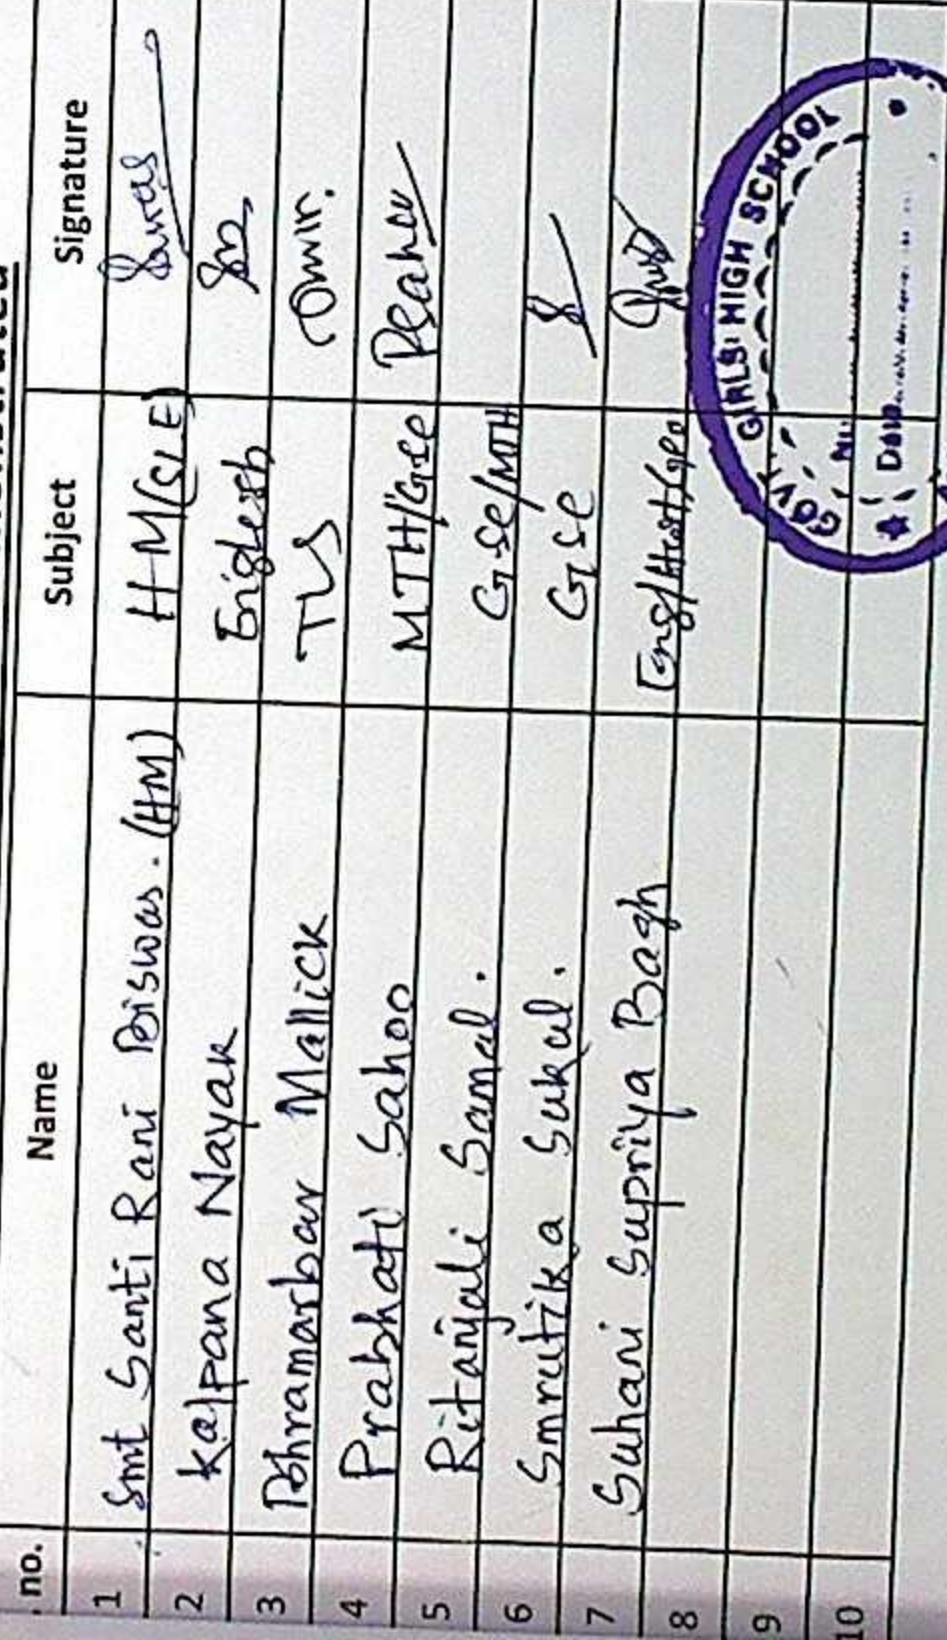 no. Name Subject Signature
1 Smt Santi Rani Biswas. (HM) HM(SLE)
2 Kalpana Nayak English
3 Bhramarbar Mallick TLS
4 Prabhati Sahoo MTH/Gsc
5 Ritanjali Samal. Gsc/MTH
6 Smrutika Sukul. Gsc
7 Suhani Supriya Bagh Eng/Hist/Geo
8
9
10
GOVT. GIRLS' HIGH SCHOOL